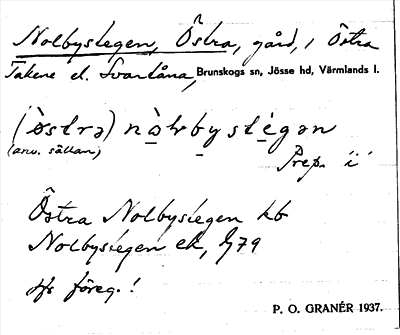 Nolbystegen, Östra, gård, i Östra
Takene el. Svartåna, Brunskogs sn, Jösse hd, Värmlands l.
(òstra) nò̱lrby̱sté̱gən
(anv. sällan)
Prep. i
Östra Nolbystegen kb
Nolbystegen ek, 79
jfr föreg.!
P. O. GRANÉR 1937.